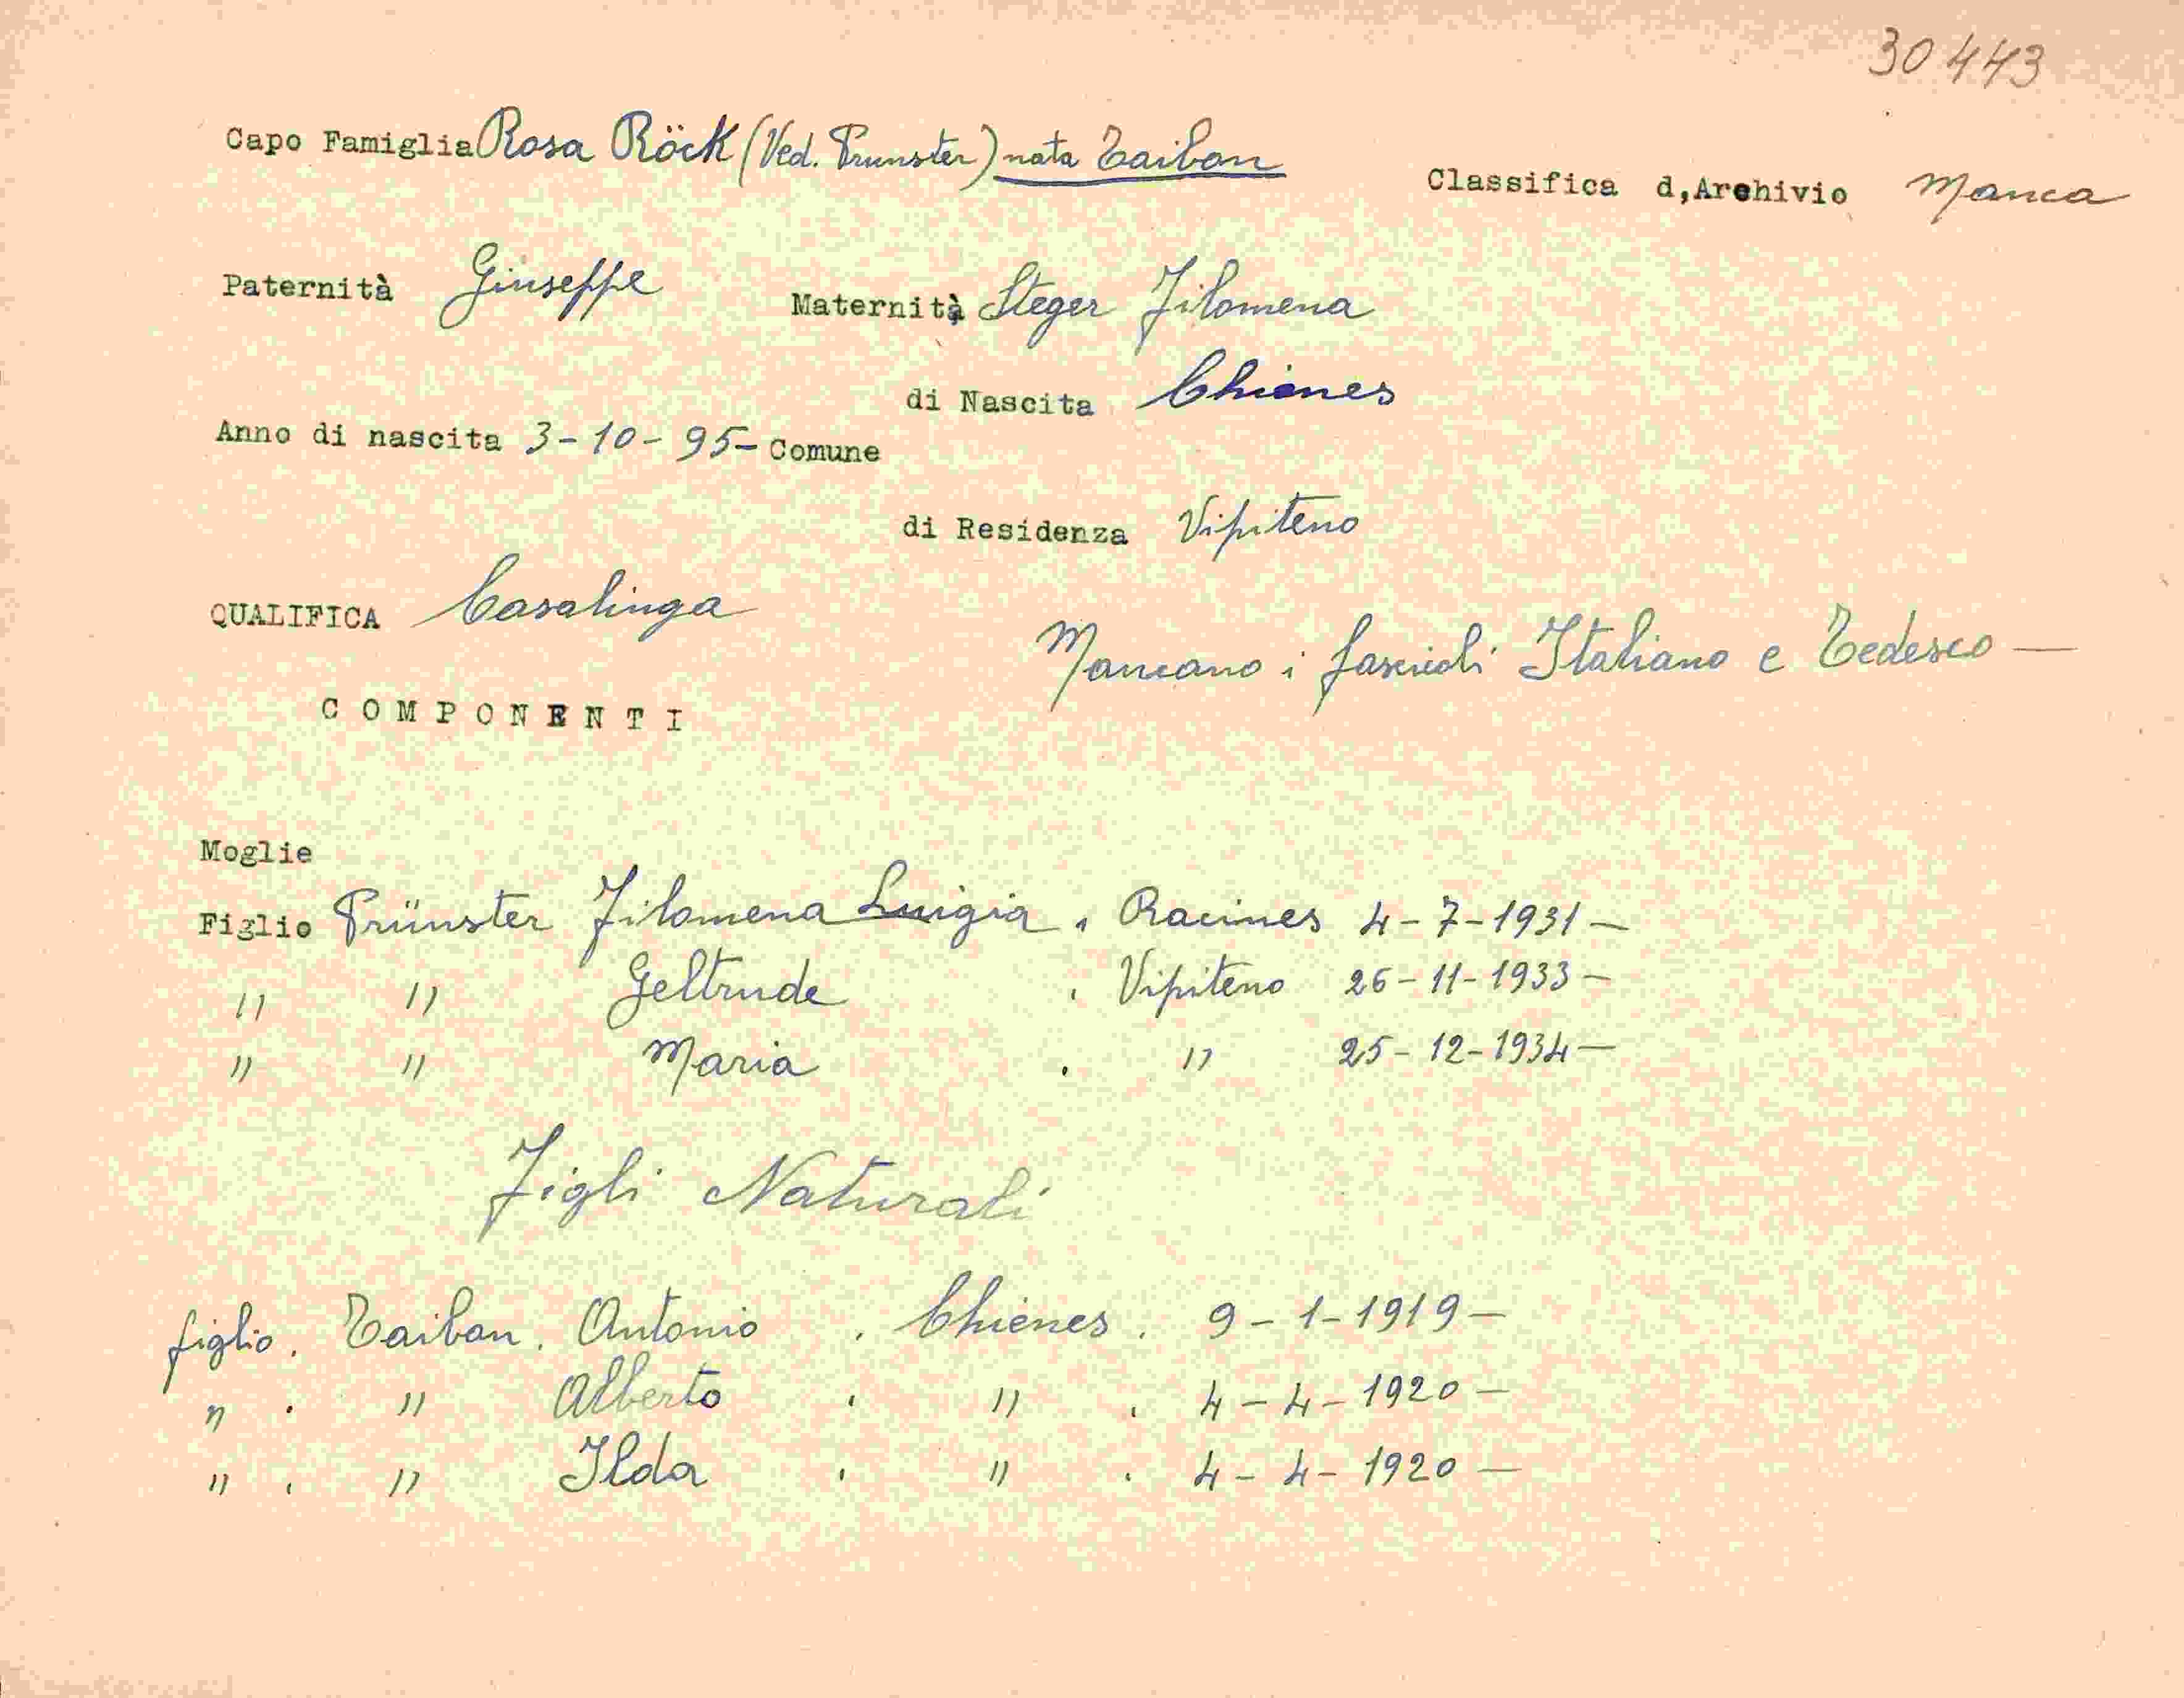 30443
Capo Famiglia Rosa Röck (Ved. Prunster) nata Taibon
Classifica d,Archivio Manca
Paternità Giuseppe Maternità Steger Filomena
di Nascita Chienes
Anno di nascita 3-10-95- Comune
di Residenza Vipiteno
QUALIFICA Casalinga
Mancano i fascicoli Italiano e Tedesco —
COMPONENTI
Moglie
Figlio Prünster Filomena Luigia . Racines 4-7-1931 —
" " Geltrude . Vipiteno 26-11-1933 —
" " Maria . " 25-12-1934 —
Figli Naturali
figlio . Taibon . Antonio . Chienes . 9-1-1919 —
" . " Alberto . " . 4-4-1920 —
" . " Ilda . " . 4-4-1920 —